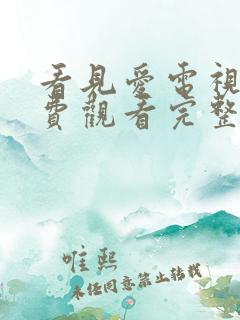 看見愛電視
費觀看完整
唯熙
未經同意禁止轉載